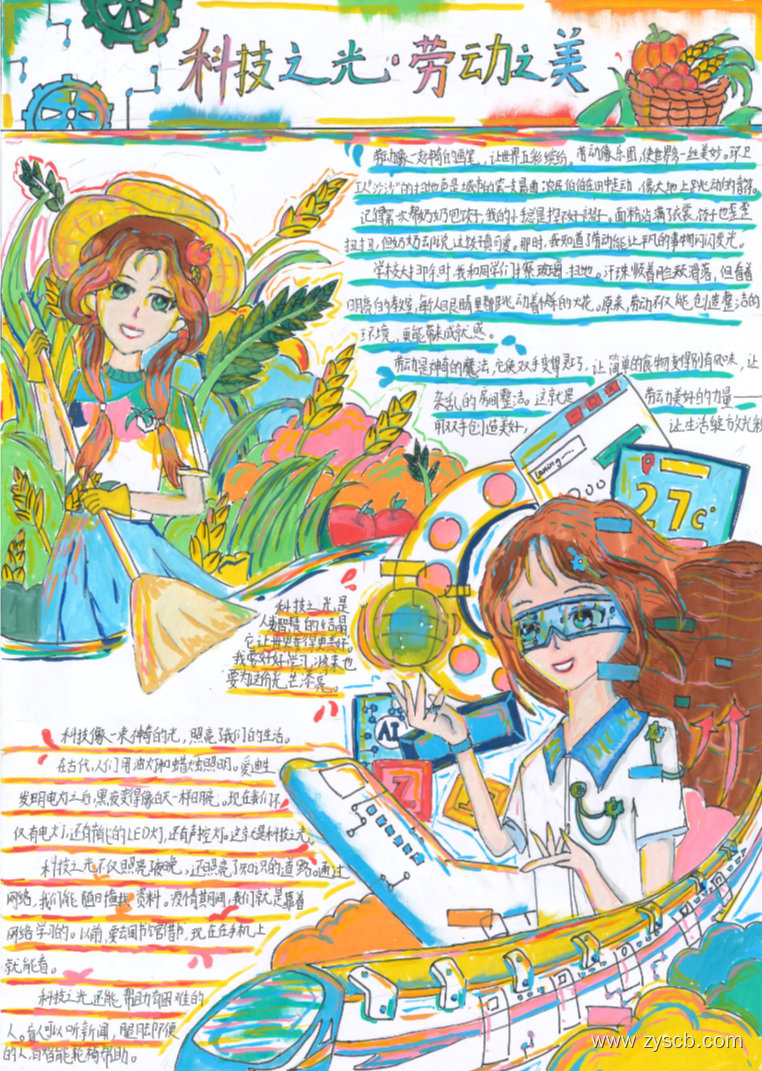 科技之光·劳动之美
劳动像一支神奇的画笔，让世界五彩缤纷。劳动像乐团，使世界多一丝美妙。环卫
工人“沙沙”的扫地声是城市的第一支晨曲；农民伯伯在田中走动，像大地上跳动的音符。
记得第一次帮奶奶包饺子，我的小手总是捏不好褶子。面粉沾满了衣裳，饺子也歪歪
扭扭，但奶奶却说这孩子真可爱。那时，我知道了劳动能让平凡的事物闪闪发光。
学校大扫除时，我和同学们擦玻璃、扫地。汗珠顺着脸颊滑落，但看着
明亮的教室，每个人的眼睛里都跳动着小小的火花。原来，劳动不仅能创造整洁的
环境，更能带来成就感。
劳动是神奇的魔法，它使双手变得灵巧，让简单的食物变得别有风味，让
杂乱的房间整洁。这就是 劳动美好的力量——
用双手创造美好， 让生活绽放光彩
Loading...
27℃
科技之光是
人类智慧的结晶
它让世界变得更美好。
我要好好学习，将来也
要为这份光芒添彩。
AI
科技像一束神奇的光，照亮了我们的生活。
在古代，人们用油灯和蜡烛照明。爱迪生
发明电灯之后，黑夜变得像白天一样明亮。现在我们不
仅有电灯，还有节能的LED灯，还有声控灯。这就是科技之光。
科技之光不仅照亮夜晚，还照亮了知识的道路。通过
网络，我们能随时查找资料。疫情期间，我们就是靠着
网络学习的。以前，要去图书馆借书，现在在手机上
就能看。
科技之光还能帮助有困难的
人。盲人可以听新闻，腿脚不便
的人有智能轮椅帮助。
www.zyscb.com